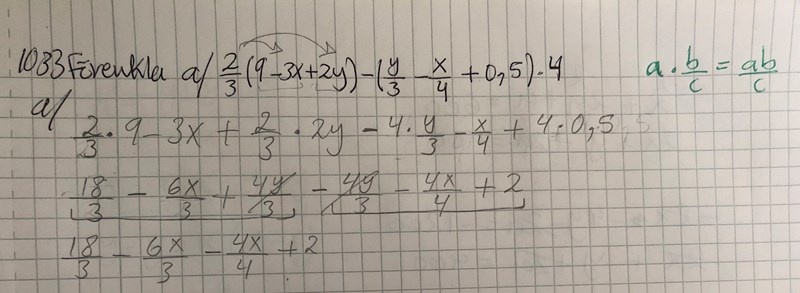 1083 Förenkla a/ 2/3 (9-3x+2y)-(y/3 - x/4 + 0,5)·4
a · b/c = ab/c
a/
2/3 · 9 - 3x + 2/3 · 2y - 4 · y/3 - x/4 + 4 · 0,5
18/3 - 6x/3 + 4y/3 - 4y/3 - 4x/4 + 2
18/3 - 6x/3 - 4x/4 + 2